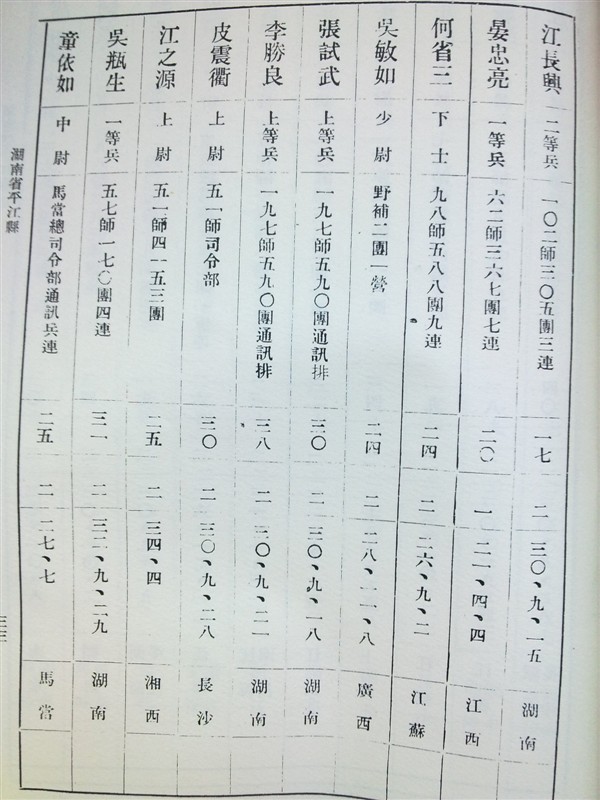 江長興 二等兵 一〇二師三〇五團三連 一七 二 三〇、九、一五 湖南
晏忠亮 一等兵 六二師三六七團七連 二〇 一 二一、四、四 江西
何省三 下士 九八師五八八團九連 二四 二 二六、九、二 江蘇
吳敏如 少尉 野補二團一營 二四 二 二八、一一、八 廣西
張試武 上等兵 一九七師五九〇團通訊排 三〇 二 三〇、九、一八 湖南
李勝良 上等兵 一九七師五九〇團通訊排 三八 二 三〇、九、二一 湖南
皮震衢 上尉 五一師司令部 三〇 二 三〇、九、二八 長沙
江之源 上尉 五一師四一五三團 二五 二 三四、四 湘西
吳瓶生 一等兵 五七師一七〇團四連 三一 二 三二、九、二九 湖南
童依如 中尉 馬當總司令部通訊兵連 二五 二 二七、七 馬當
湖南省平江縣